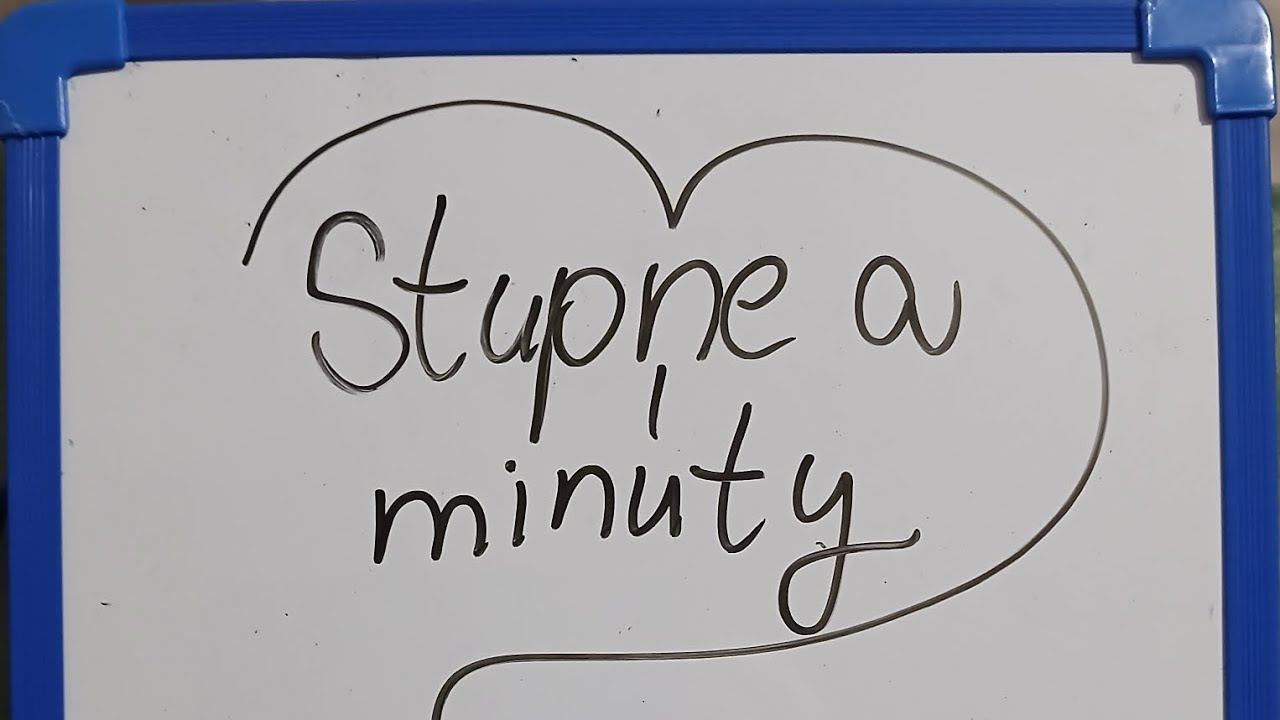 Stupne a
minúty